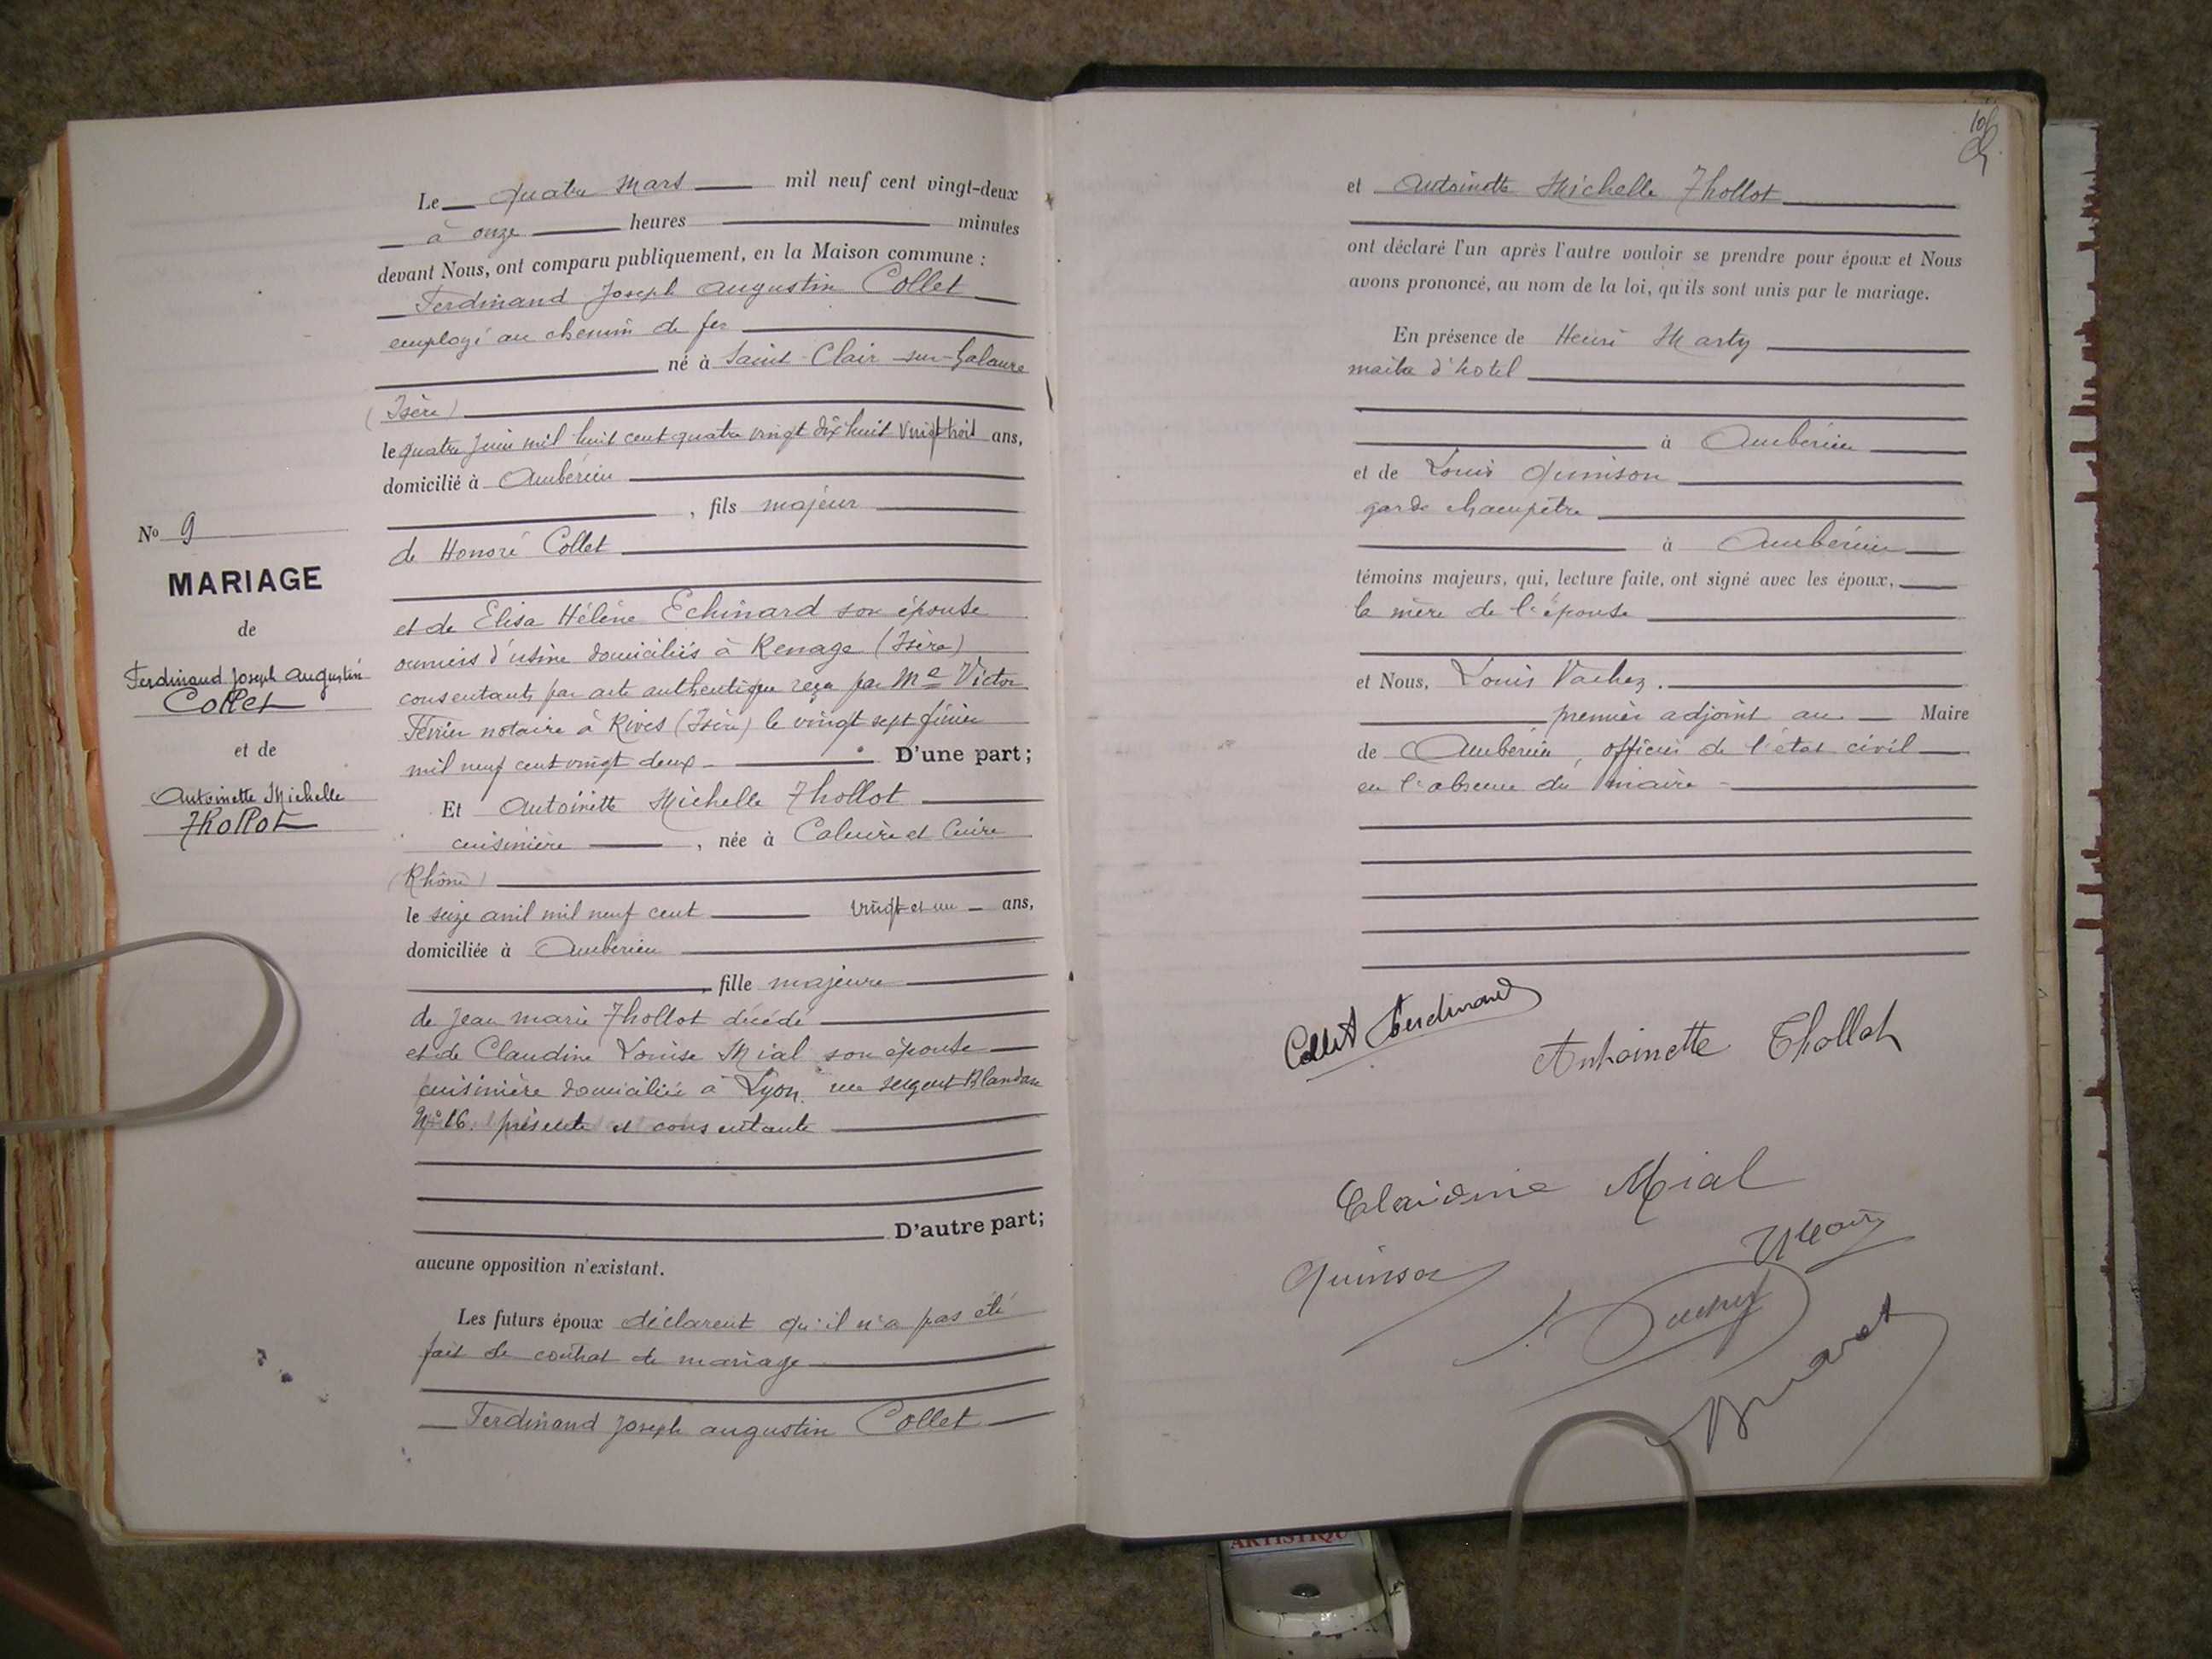 Le quatre Mars mil neuf cent vingt-deux
à onze heures minutes
devant Nous, ont comparu publiquement, en la Maison commune :
Ferdinand Joseph Augustin Collet
employé au chemin de fer
né à Saint-Clair-sur-Galaure
(Isère)
le quatre Juin mil huit cent quatre vingt dix huit vingt trois ans,
domicilié à Ambérieu
, fils majeur
de Honoré Collet
et de Elisa Hélène Echinard son épouse
ouvriers d'usine domiciliés à Renage (Isère)
consentants par acte authentique reçu par Me Victor
Février notaire à Rives (Isère) le vingt sept février
mil neuf cent vingt deux D'une part;
Et Antoinette Michelle Thollot
cuisinière , née à Caluire et Cuire
(Rhône)
le seize avril mil neuf cent vingt et un ans,
domiciliée à Ambérieu
, fille majeure
de Jean Marie Thollot décédé
et de Claudine Louise Mial son épouse
cuisinière domiciliée à Lyon, rue Sergent Blandan
No 16. présente et consentante
D'autre part;
aucune opposition n'existant.
Les futurs époux déclarent qu'il n'a pas été
fait de contrat de mariage
Ferdinand Joseph Augustin Collet
No 9
MARIAGE
de
Ferdinand Joseph Augustin
Collet
et de
Antoinette Michelle
Thollot
et Antoinette Michelle Thollot
ont déclaré l'un après l'autre vouloir se prendre pour époux et Nous
avons prononcé, au nom de la loi, qu'ils sont unis par le mariage.
En présence de Henri Marty
maître d'hotel
à Ambérieu
et de Louis Quinson
garde champêtre
à Ambérieu
témoins majeurs, qui, lecture faite, ont signé avec les époux,
la mère de l'épouse
et Nous, Louis Vachez.
premier adjoint au Maire
de Ambérieu, officier de l'état civil
en l'absence du maire
Collet Ferdinand
Antoinette Thollot
Claudine Mial
Quinson
ARTISTIQU